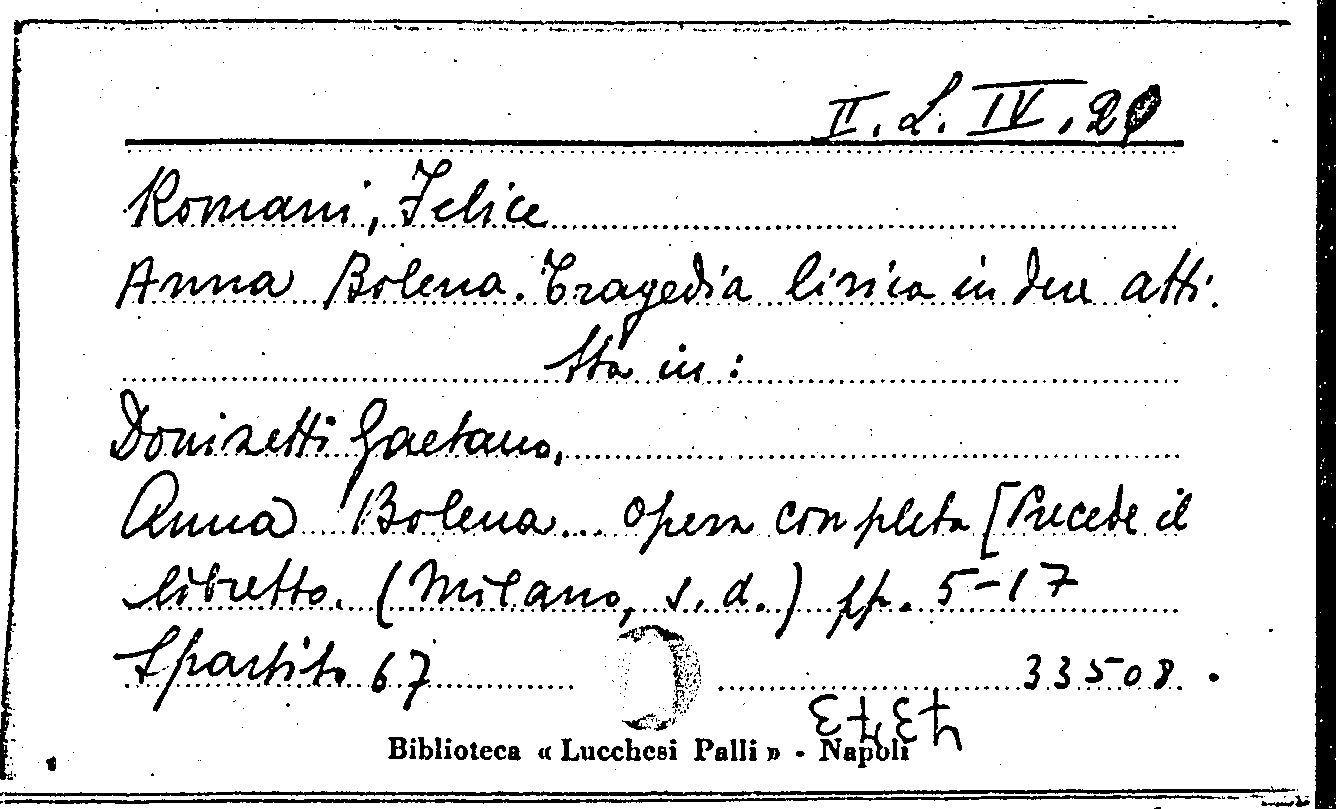 II. L. IV. 20
Romani, Felice
Anna Bolena. Tragedia lirica in due atti.
Sta in:
Donizetti Gaetano,
Anna Bolena... Opera completa [Precede il
libretto. (Milano, s. d.) pp. 5-17
Spartito 67 33508.
Biblioteca « Lucchesi Palli » - Napoli